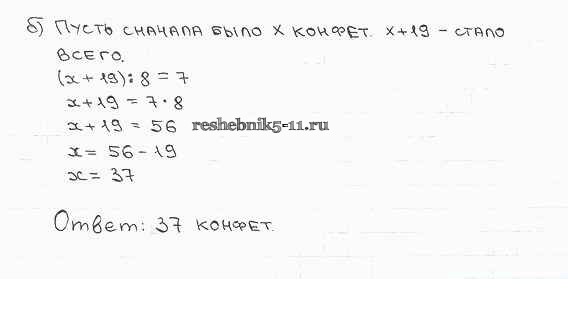 б) Пусть сначала было х конфет. х+19 - стало
всего.
(х + 19) : 8 = 7
х + 19 = 7 · 8
х + 19 = 56 reshebnik5-11.ru
х = 56 - 19
х = 37
Ответ: 37 конфет.